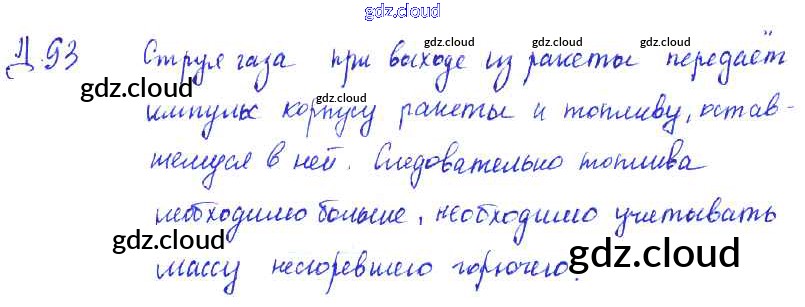 gdz.cloud
Д.93 Струя газа при выходе из ракеты передаёт
импульс корпусу ракеты и топливу, остав-
шемуся в ней. Следовательно топлива
необходимо больше, необходимо учитывать
массу несгоревшего горючего.
gdz.cloud
gdz.cloud
gdz.cloud
gdz.cloud
gdz.cloud
gdz.cloud
gdz.cloud
gdz.cloud